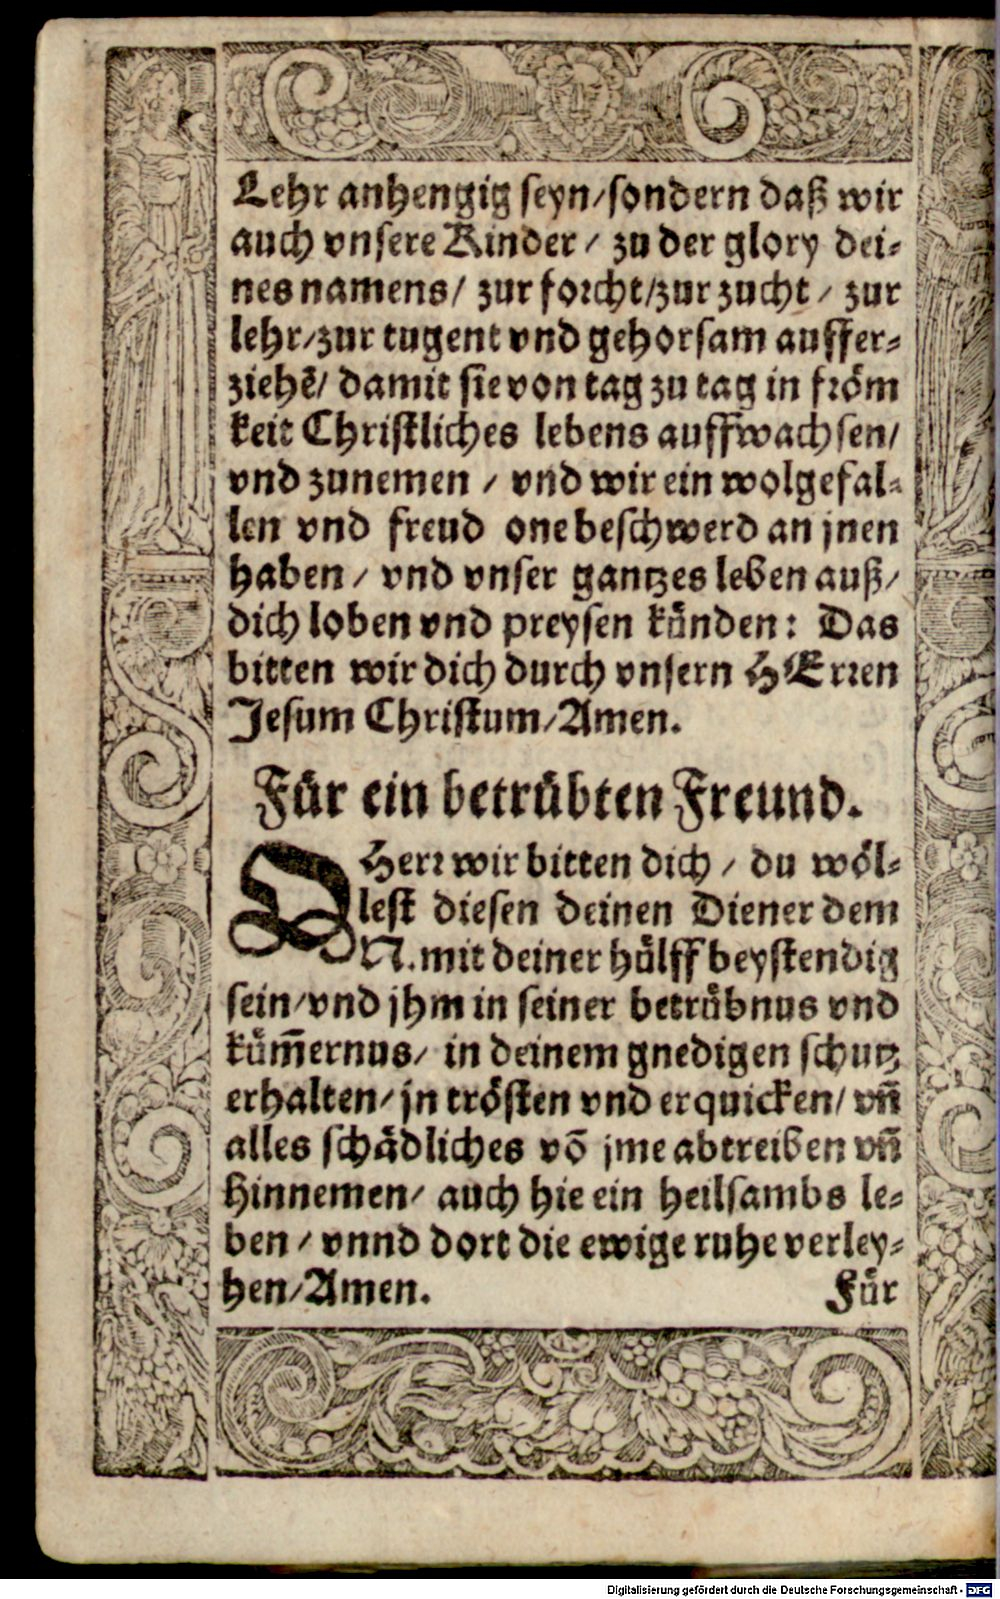 Lehr anhengig seyn/sondern daß wir
auch vnsere Kinder / zu der glory dei-
nes namens/ zur forcht/zur zucht / zur
lehr/zur tugent vnd gehorsam auffer-
ziehē/ damit sie von tag zu tag in fröm
keit Christliches lebens auffwachsen/
vnd zunemen / vnd wir ein wolgefal-
len vnd freud one beschwerd an jnen
haben / vnd vnser gantzes leben auß/
dich loben vnd preysen künden: Das
bitten wir dich durch vnsern HErren
Jesum Christum/Amen.
Für ein betrübten Freund.
O Herr wir bitten dich / du wöl-
lest diesen deinen Diener dem
N. mit deiner hülff beystendig
sein/vnd jhm in seiner betrübnus vnd
küm̄ernus/ in deinem gnedigen schutz
erhalten/jn trösten vnd erquicken/ vn̄
alles schädliches vō jme abtreiben vn̄
hinnemen/ auch hie ein heilsambs le-
ben / vnnd dort die ewige ruhe verley-
hen/Amen. Für
Digitalisierung gefördert durch die Deutsche Forschungsgemeinschaft - DFG